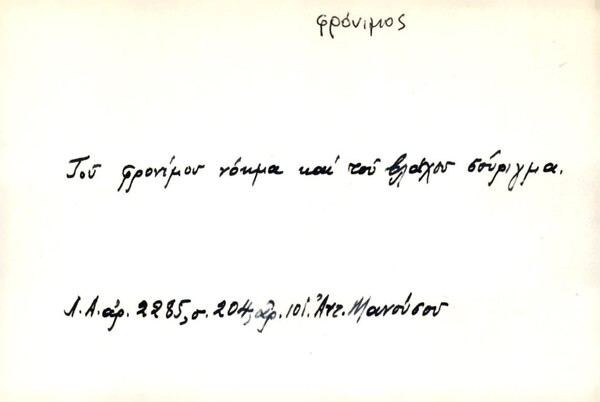 φρόνιμος
Τοῦ φρονίμου νόημα καί τοῦ βλάχου σούριγμα.
Λ.Α. ἀρ. 2285, σ. 204, ἀρ. 101. Ἀντ. Μανούσου